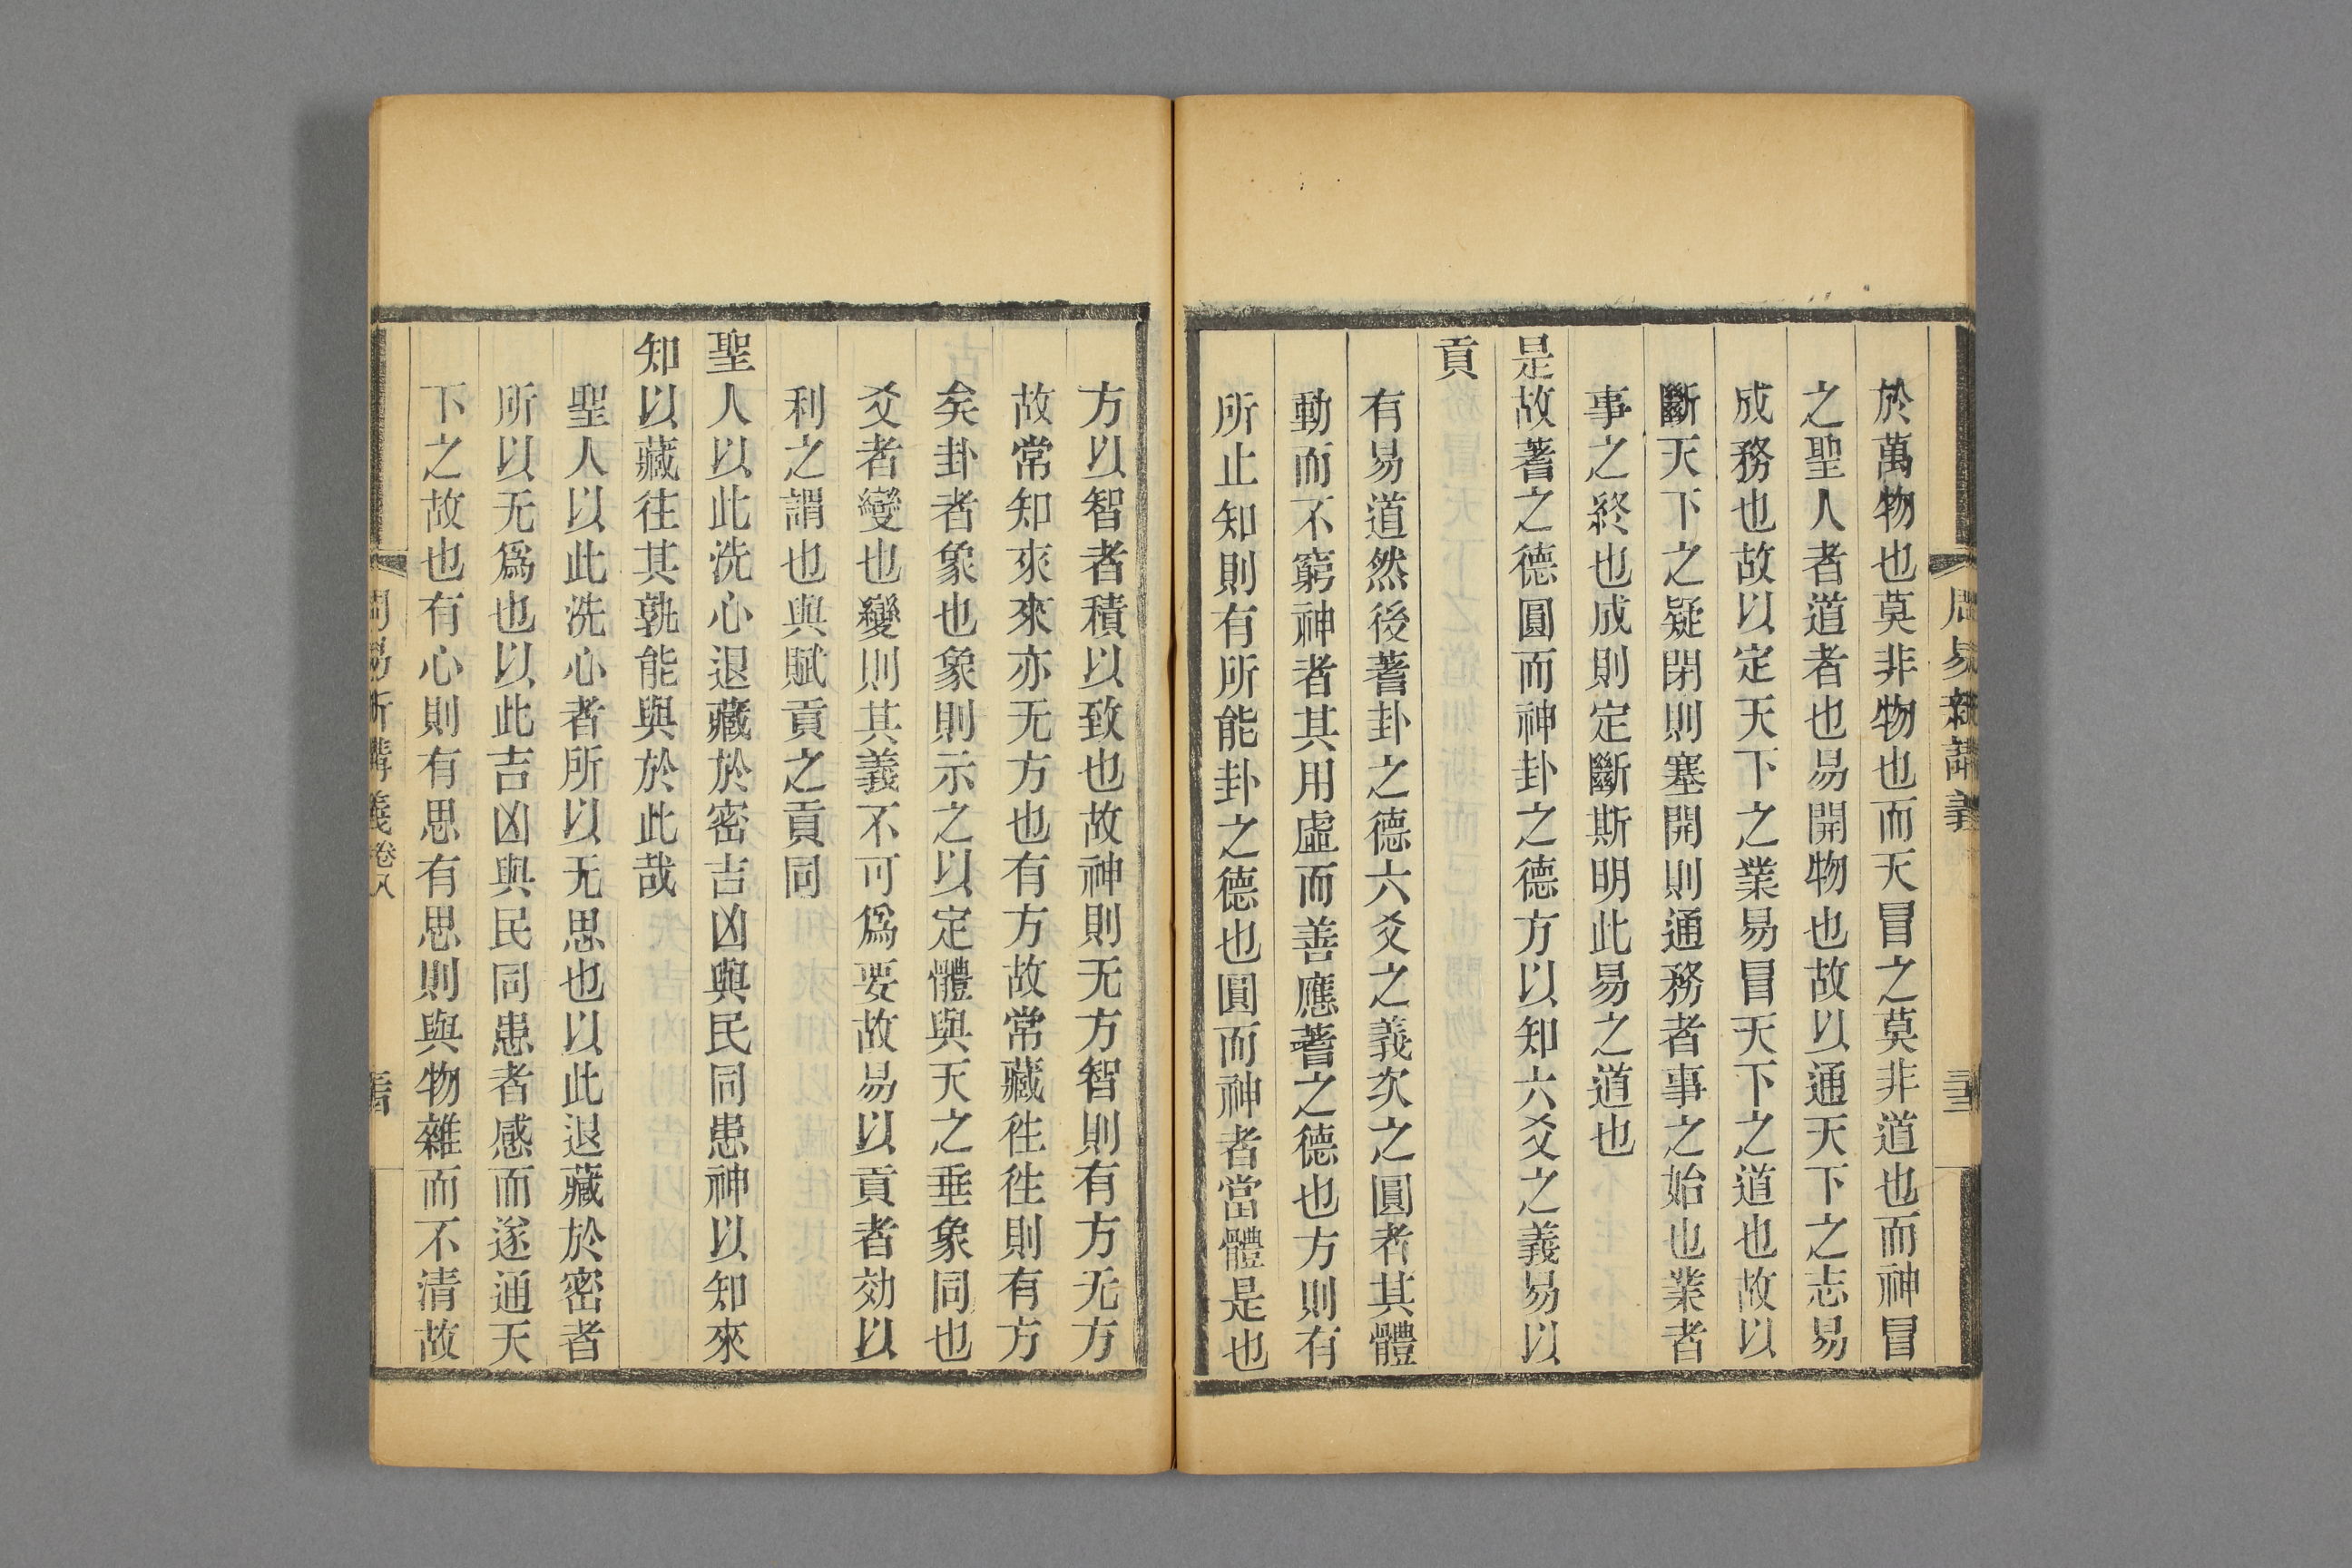 周易新講義
於萬物也莫非物也而天冒之莫非道也而神冒
之聖人者道者也易開物也故以通天下之志易
成務也故以定天下之業易冒天下之道也故以
斷天下之疑閉則塞開則通務者事之始也業者
事之終也成則定斷斯明此易之道也
是故蓍之德圓而神卦之德方以知六爻之義易以
貢
有易道然後蓍卦之德六爻之義次之圓者其體
動而不窮神者其用虛而善應蓍之德也方則有
所止知則有所能卦之德也圓而神者當體是也
方以智者積以致也故神則无方智則有方无方
故常知來來亦无方也有方故常藏徃徃則有方
矣卦者象也象則示之以定體與天之垂象同也
爻者變也變則其義不可爲要故易以貢者効以
利之謂也與賦貢之貢同
聖人以此洗心退藏於密吉凶與民同患神以知來
知以藏往其孰能與於此哉
聖人以此洗心者所以无思也以此退藏於密者
所以无爲也以此吉凶與民同患者感而遂通天
下之故也有心則有思有思則與物雜而不清故
周易新講義卷八